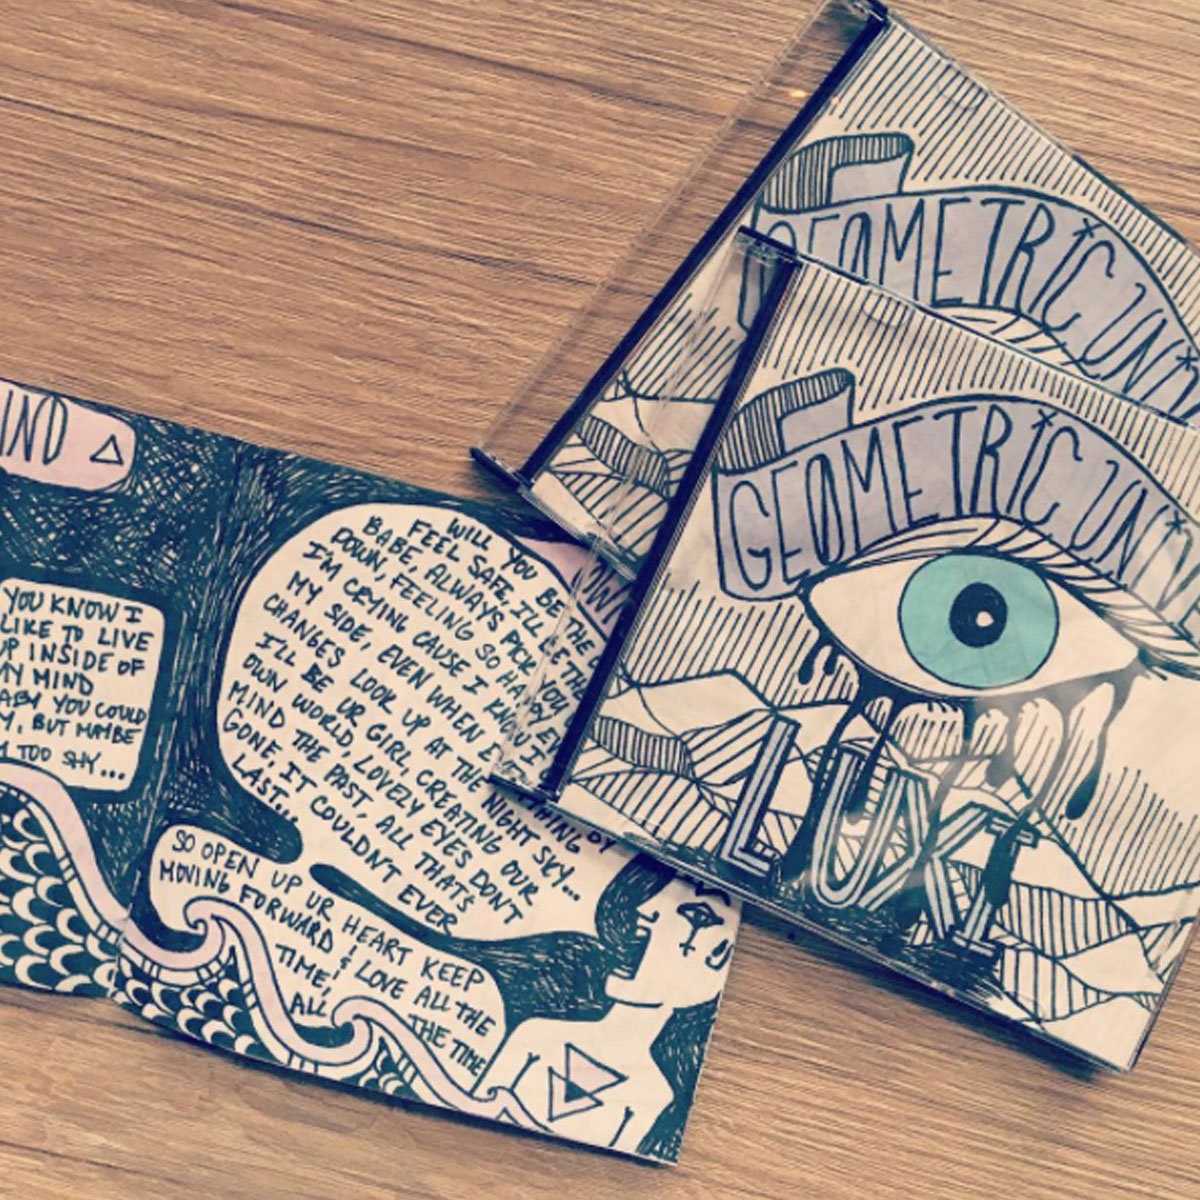 GEOMETRIC UNI
GEOMETRIC UNI
LUXI
IND
YOU KNOW I
LIKE TO LIVE
UP INSIDE OF
MY MIND
BABY YOU COULD
BUT MAYBE
TOO SHY...
WILL YOU
FEEL SAFE, I'LL BE THE
BABE, ALWAYS PICK YOU
DOWN, FEELING SO HAPPY
I'M CRYING CAUSE I KNOW
MY SIDE, EVEN WHEN BY
CHANGES LOOK UP AT THE NIGHT SKY...
I'LL BE UR GIRL, CREATING OUR
OWN WORLD, LOVELY EYES DON'T
MIND THE PAST, ALL THAT'S
GONE, IT COULDN'T EVER
LAST...
SO OPEN UP UR HEART KEEP
MOVING FORWARD & LOVE ALL THE
TIME,
ALL THE TIME